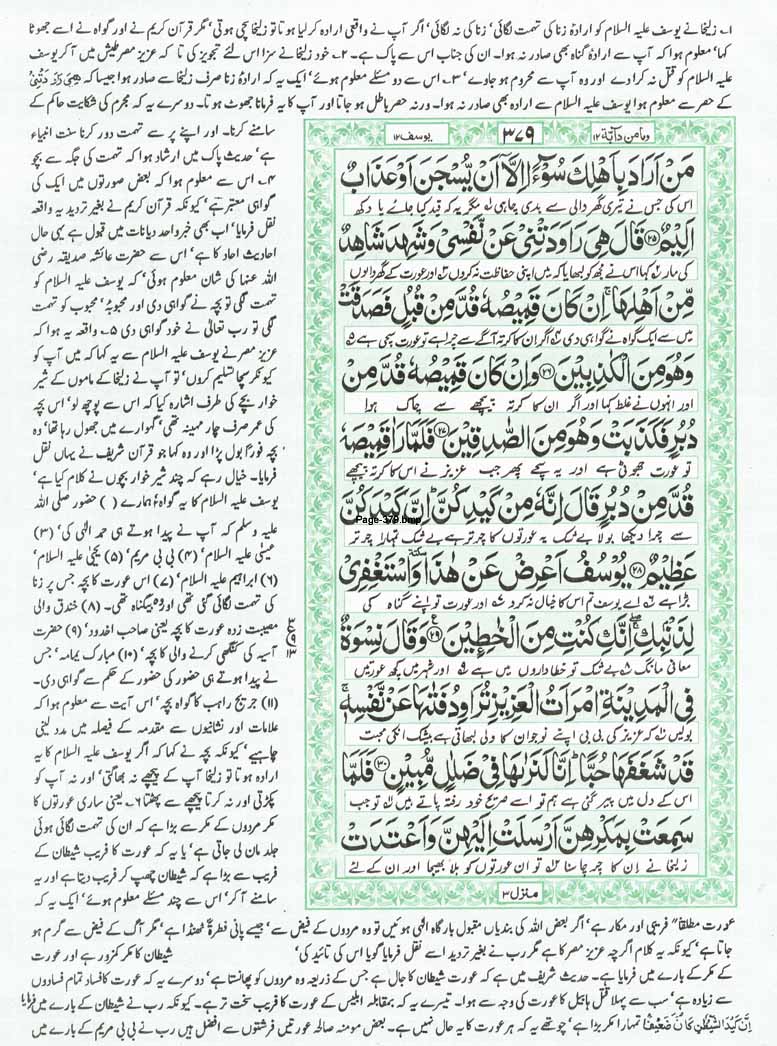 ۱۔ زلیخا نے یوسف علیہ السلام کو ارادہ زنا کی تہمت لگائی، زنا کی نہ لگائی، اگر آپ نے واقعی ارادہ کر لیا ہوتا تو زلیخا سچی ہوتی، مگر قرآن کریم نے اور گواہ نے اسے جھوٹا
کہا، معلوم ہوا کہ آپ سے ارادۂ گناہ بھی صادر نہ ہوا۔ ان کی جناب اس سے پاک ہے۔ ۲۔ خود زلیخا نے سزا اس لئے تجویز کی تا کہ عزیز مصر طیش میں آ کر یوسف
علیہ السلام کو قتل نہ کرا دے اور وہ آپ سے محروم ہو جاوے، ۳۔ اس سے دو مسئلے معلوم ہوئے، ایک یہ کہ ارادۂ زنا صرف زلیخا سے صادر ہوا جیسا کہ هِیَ رَاوَدَتْنِیْ
کے حصر سے معلوم ہوا یوسف علیہ السلام سے ارادہ بھی صادر نہ ہوا۔ ورنہ حصر باطل ہو جاتا اور آپ کا یہ فرمانا جھوٹ ہوتا۔ دوسرے یہ کہ مجرم کی شکایت حاکم کے
سامنے کرنا۔ اور اپنے پر سے تہمت دور کرنا سنت انبیاء
ہے، حدیث پاک میں ارشاد ہوا کہ تہمت کی جگہ سے بچو
۴۔ اس سے معلوم ہوا کہ بعض صورتوں میں ایک کی
گواہی معتبر ہے، کیونکہ قرآن کریم نے بغیر تردید یہ واقعہ
نقل فرمایا، اب بھی خبر واحد دیانات میں قبول ہے یہی حال
احادیث احاد کا ہے، اس سے حضرت عائشہ صدیقہ رضی
اللہ عنہا کی شان معلوم ہوئی، کہ یوسف علیہ السلام کو
تہمت لگی تو بچہ نے گواہی دی اور محبوبۂ محبوب کو تہمت
لگی تو رب تعالٰی نے خود گواہی دی ۵۔ واقعہ یہ ہوا کہ
عزیز مصر نے یوسف علیہ السلام سے یہ کہا کہ میں آپ کو
کیونکر سچا تسلیم کروں، تو آپ نے زلیخا کے ماموں کے شیر
خوار بچے کی طرف اشارہ کیا کہ اس سے پوچھ لو، اس بچہ
کی عمر صرف چار مہینہ تھی، گہوارے میں جھول رہا تھا، وہ
بچہ فوراً بول پڑا اور وہ کہا جو قرآن شریف نے یہاں نقل
فرمایا۔ خیال رہے کہ چند شیر خوار بچوں نے کلام کیا ہے،
یوسف علیہ السلام کا یہ گواہ، ہمارے ( ) حضور صلی اللہ
علیہ وسلم کہ آپ نے پیدا ہوتے ہی حمد الٰہی کی، (۳)
عیسٰی علیہ السلام، (۴) بی بی مریم، (۵) یحیٰی علیہ السلام،
(۶) ابراہیم علیہ السلام، (۷) اس عورت کا بچہ جس پر زنا
کی تہمت لگائی گئی تھی اور وہ بیگناہ تھی۔ (۸) خندق والی
مصیبت زدہ عورت کا بچہ یعنی صاحب اخدود، (۹) حضرت
آسیہ کی کنگھی کرنے والی کا بچہ، (۱۰) مبارک یمامہ، جس
نے پیدا ہوتے ہی حضور کی حضور کے حکم سے گواہی دی۔
(۱۱) جریج راہب کا گواہ بچہ، اس آیت سے معلوم ہوا کہ
علامات اور نشانیوں سے مقدمہ کے فیصلہ میں مدد لینی
چاہیے، کیونکہ بچہ نے کہا کہ اگر یوسف علیہ السلام کا یہ
ارادہ ہوتا تو زلیخا آپ کے پیچھے نہ بھاگتی، اور نہ آپ کو
پکڑتی اور نہ کرتا پیچھے سے پھٹتا ۶۔ یعنی ساری عورتوں کا
مکر مردوں کے مکر سے بڑا ہے کہ ان کی تہمت لگائی ہوئی
جلد مان لی جاتی ہے، یا یہ کہ عورت کا فریب شیطان کے
فریب سے بڑا ہے کہ شیطان چھپ کر فریب دیتا ہے اور یہ
سامنے آ کر، اس سے چند مسئلے معلوم ہوئے، ایک یہ کہ
وما من دابۃ ۱۲
۳۷۹
یوسف ۱۲
مَنْ اَرَادَ بِاَهْلِكَ سُوْٓءًا اِلَّاۤ اَنْ یُّسْجَنَ اَوْ عَذَابٌ
اس کی جس نے تیری گھر والی سے بدی چاہی مگر یہ کہ قید کیا جائے یا دکھ
اَلِیْمٌ ۲۵ قَالَ هِیَ رَاوَدَتْنِیْ عَنْ نَّفْسِیْ وَ شَهِدَ شَاهِدٌ
کی مار کہا اس نے مجھ کو لبھایا کہ میں اپنی حفاظت نہ کروں اور عورت کے گھر والوں
مِّنْ اَهْلِهَا ۚ اِنْ كَانَ قَمِیْصُهٗ قُدَّ مِنْ قُبُلٍ فَصَدَقَتْ
میں سے ایک گواہ نے گواہی دی اگر ان کا کرتہ آگے سے چرا ہے تو عورت سچی ہے
وَ هُوَ مِنَ الْكٰذِبِیْنَ ۲۶ وَ اِنْ كَانَ قَمِیْصُهٗ قُدَّ مِنْ
اور انہوں نے غلط کہا اور اگر ان کا کرتہ پیچھے سے چاک ہوا
دُبُرٍ فَكَذَبَتْ وَ هُوَ مِنَ الصّٰدِقِیْنَ ۲۷ فَلَمَّا رَاٰ قَمِیْصَهٗ
تو عورت جھوٹی ہے اور یہ سچے پھر جب عزیز نے اس کا کرتہ پیچھے
قُدَّ مِنْ دُبُرٍ قَالَ اِنَّهٗ مِنْ كَیْدِكُنَّ ؕ اِنَّ كَیْدَكُنَّ
Page-379.bmp
سے چرا دیکھا بولا بے شک یہ عورتوں کا چرتر ہے بے شک تمہارا چرتر
عَظِیْمٌ ۲۸ یُوْسُفُ اَعْرِضْ عَنْ هٰذَا ٚ وَ اسْتَغْفِرِیْ
بڑا ہے اے یوسف تم اس کا خیال نہ کرو اور عورت تو اپنے گناہ کی
لِذَنْۢبِكِ ۖۚ اِنَّكِ كُنْتِ مِنَ الْخٰطِـِٕیْنَ ۲۹ وَ قَالَ نِسْوَةٌ
معافی مانگ بے شک تو خطاداروں میں ہے اور شہر میں کچھ عورتیں
فِی الْمَدِیْنَةِ امْرَاَتُ الْعَزِیْزِ تُرَاوِدُ فَتٰىهَا عَنْ نَّفْسِهٖ ۚ
بولیں کہ عزیز کی بی بی اپنے نوجوان کا دل لبھاتی ہے بیشک انکی محبت
قَدْ شَغَفَهَا حُبًّا ؕ اِنَّا لَنَرٰىهَا فِیْ ضَلٰلٍ مُّبِیْنٍ ۳۰ فَلَمَّا
اس کے دل میں پیر گئی ہے ہم تو اسے صریح خود رفتہ پاتے ہیں تو جب
سَمِعَتْ بِمَكْرِهِنَّ اَرْسَلَتْ اِلَیْهِنَّ وَ اَعْتَدَتْ
زلیخا نے ان کا چرچا سنا تو ان عورتوں کو بلا بھیجا اور ان کے لئے
منزل ۳
عورت مطلقاً فریبی اور مکار ہے، اگر بعض اللہ کی بندیاں مقبول بارگاہ الٰہی ہوئیں تو وہ مردوں کے فیض سے، جیسے پانی فطرۃً ٹھنڈا ہے، مگر آگ کے فیض سے گرم ہو
جاتا ہے، کیونکہ یہ کلام اگرچہ عزیز مصر کا ہے مگر رب نے بغیر تردید اسے نقل فرمایا گویا اس کی تائید کی، شیطان کا مکر کمزور ہے اور عورت
کے مکر کے بارے میں فرمایا ہے۔ حدیث شریف میں ہے کہ عورت شیطان کا جال ہے جس کے ذریعہ وہ مردوں کو پھانستا ہے، دوسرے یہ کہ عورت کا فساد تمام فسادوں
سے زیادہ ہے، سب سے پہلا قتل ہابیل کا عورت کی وجہ سے ہوا۔ تیسرے یہ کہ بمقابلہ ابلیس کے عورت کا فریب سخت تر ہے۔ کیونکہ رب نے شیطان کے بارے میں فرمایا
اِنَّ كَیْدَ الشَّیْطٰنِ كَانَ ضَعِیْفًا تمہارا مکر بڑا ہے، چوتھے یہ کہ ہر عورت کا یہ حال نہیں ہے۔ بعض مومنہ صالحہ عورتیں فرشتوں سے افضل ہیں رب نے بی بی مریم کے بارے میں